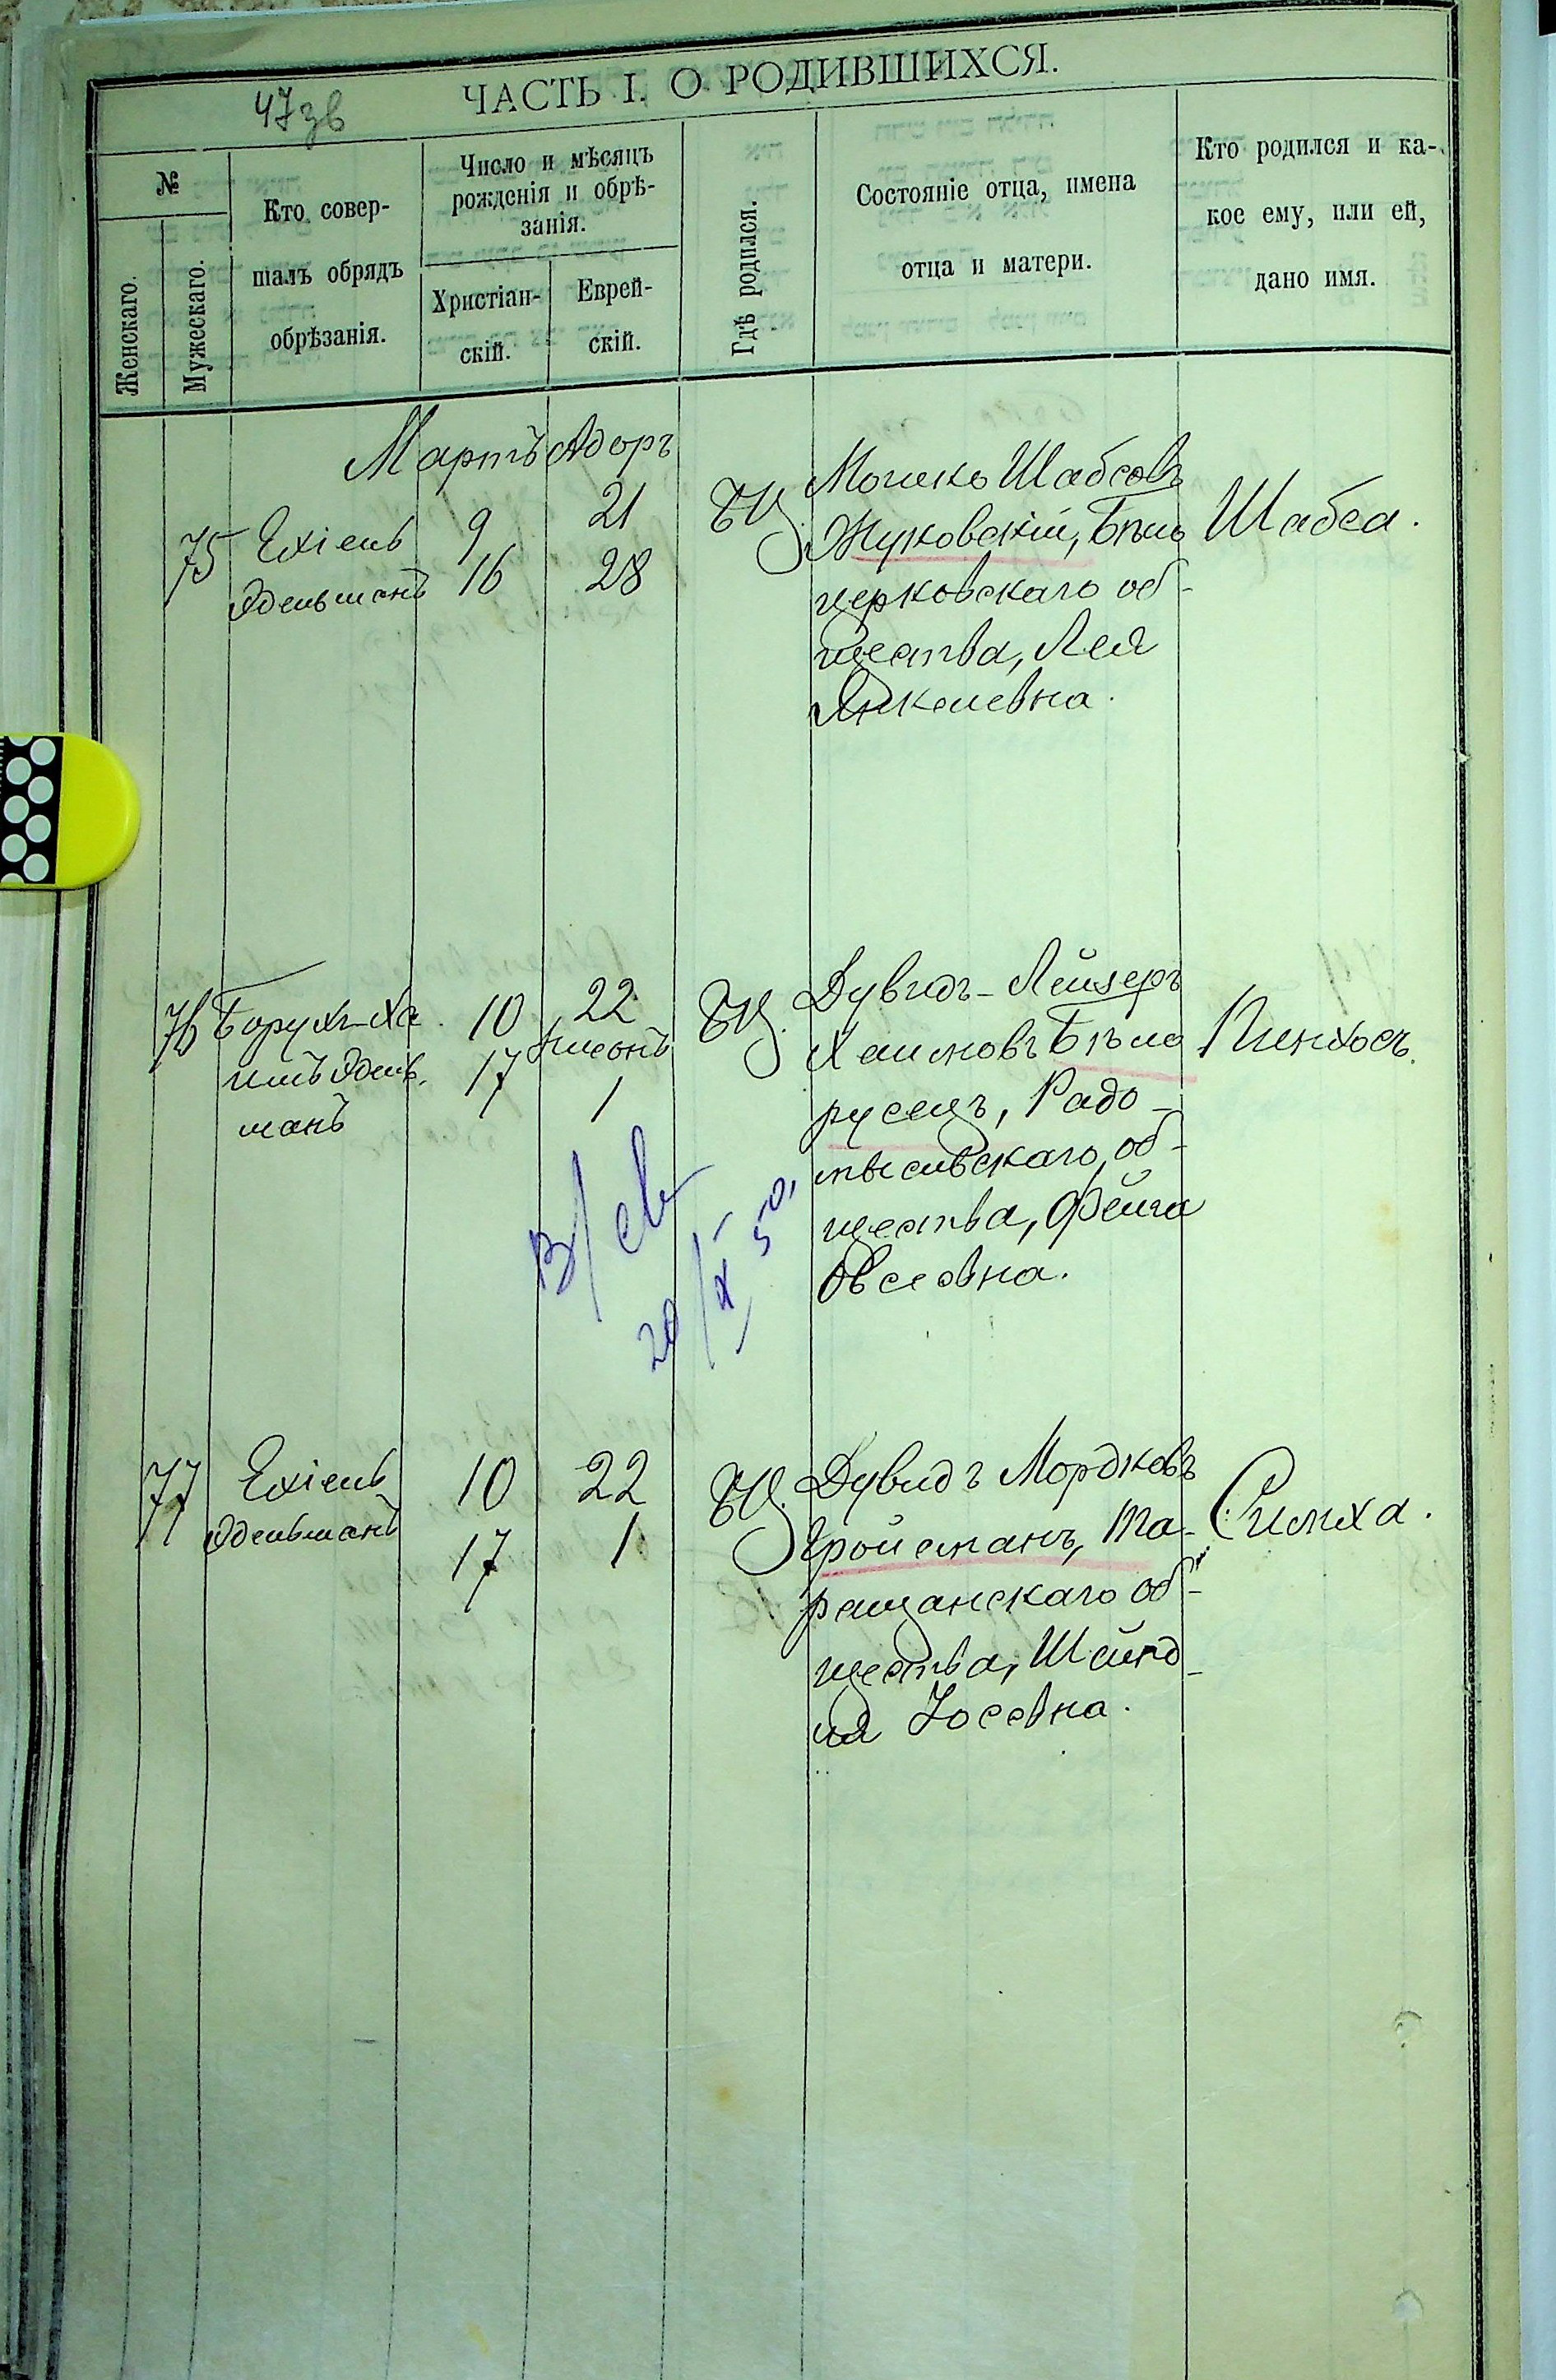 47зв
ЧАСТЬ I. О РОДИВШИХСЯ.
№
Женскаго.
Мужескаго.
Кто совер-
шалъ обрядъ
обрѣзанія.
Число и мѣсяцъ
рожденія и обрѣ-
занія.
Христіан-
скій.
Еврей-
скій.
Гдѣ родился.
Состояніе отца, имена
отца и матери.
Кто родился и ка-
кое ему, или ей,
дано имя.
Мартъ Адоръ
75 Ехіель
Эдельманъ
9
16
21
28
БЦ.
Мошко Шабсовъ
Жуковскій, Бѣло
церковскаго об-
щества, Лея
Янкелевна.
Шабса.
76 Борухъ-Ха
имъ Эдель
манъ
10
17
22
Нисонъ
1
БЦ.
Дувидъ-Лейзеръ
Хаимовъ Бѣло
русецъ, Радо-
мысльскаго об-
щества, Фейга
Овсеовна.
Пинхосъ.
В/св
20/X 50.
77 Ехіель
Эдельманъ
10
17
22
1
БЦ.
Дувидъ Мордковъ
Гройсманъ, Та-
ращанскаго об-
щества, Шейнд-
ля Iосевна.
Симха.